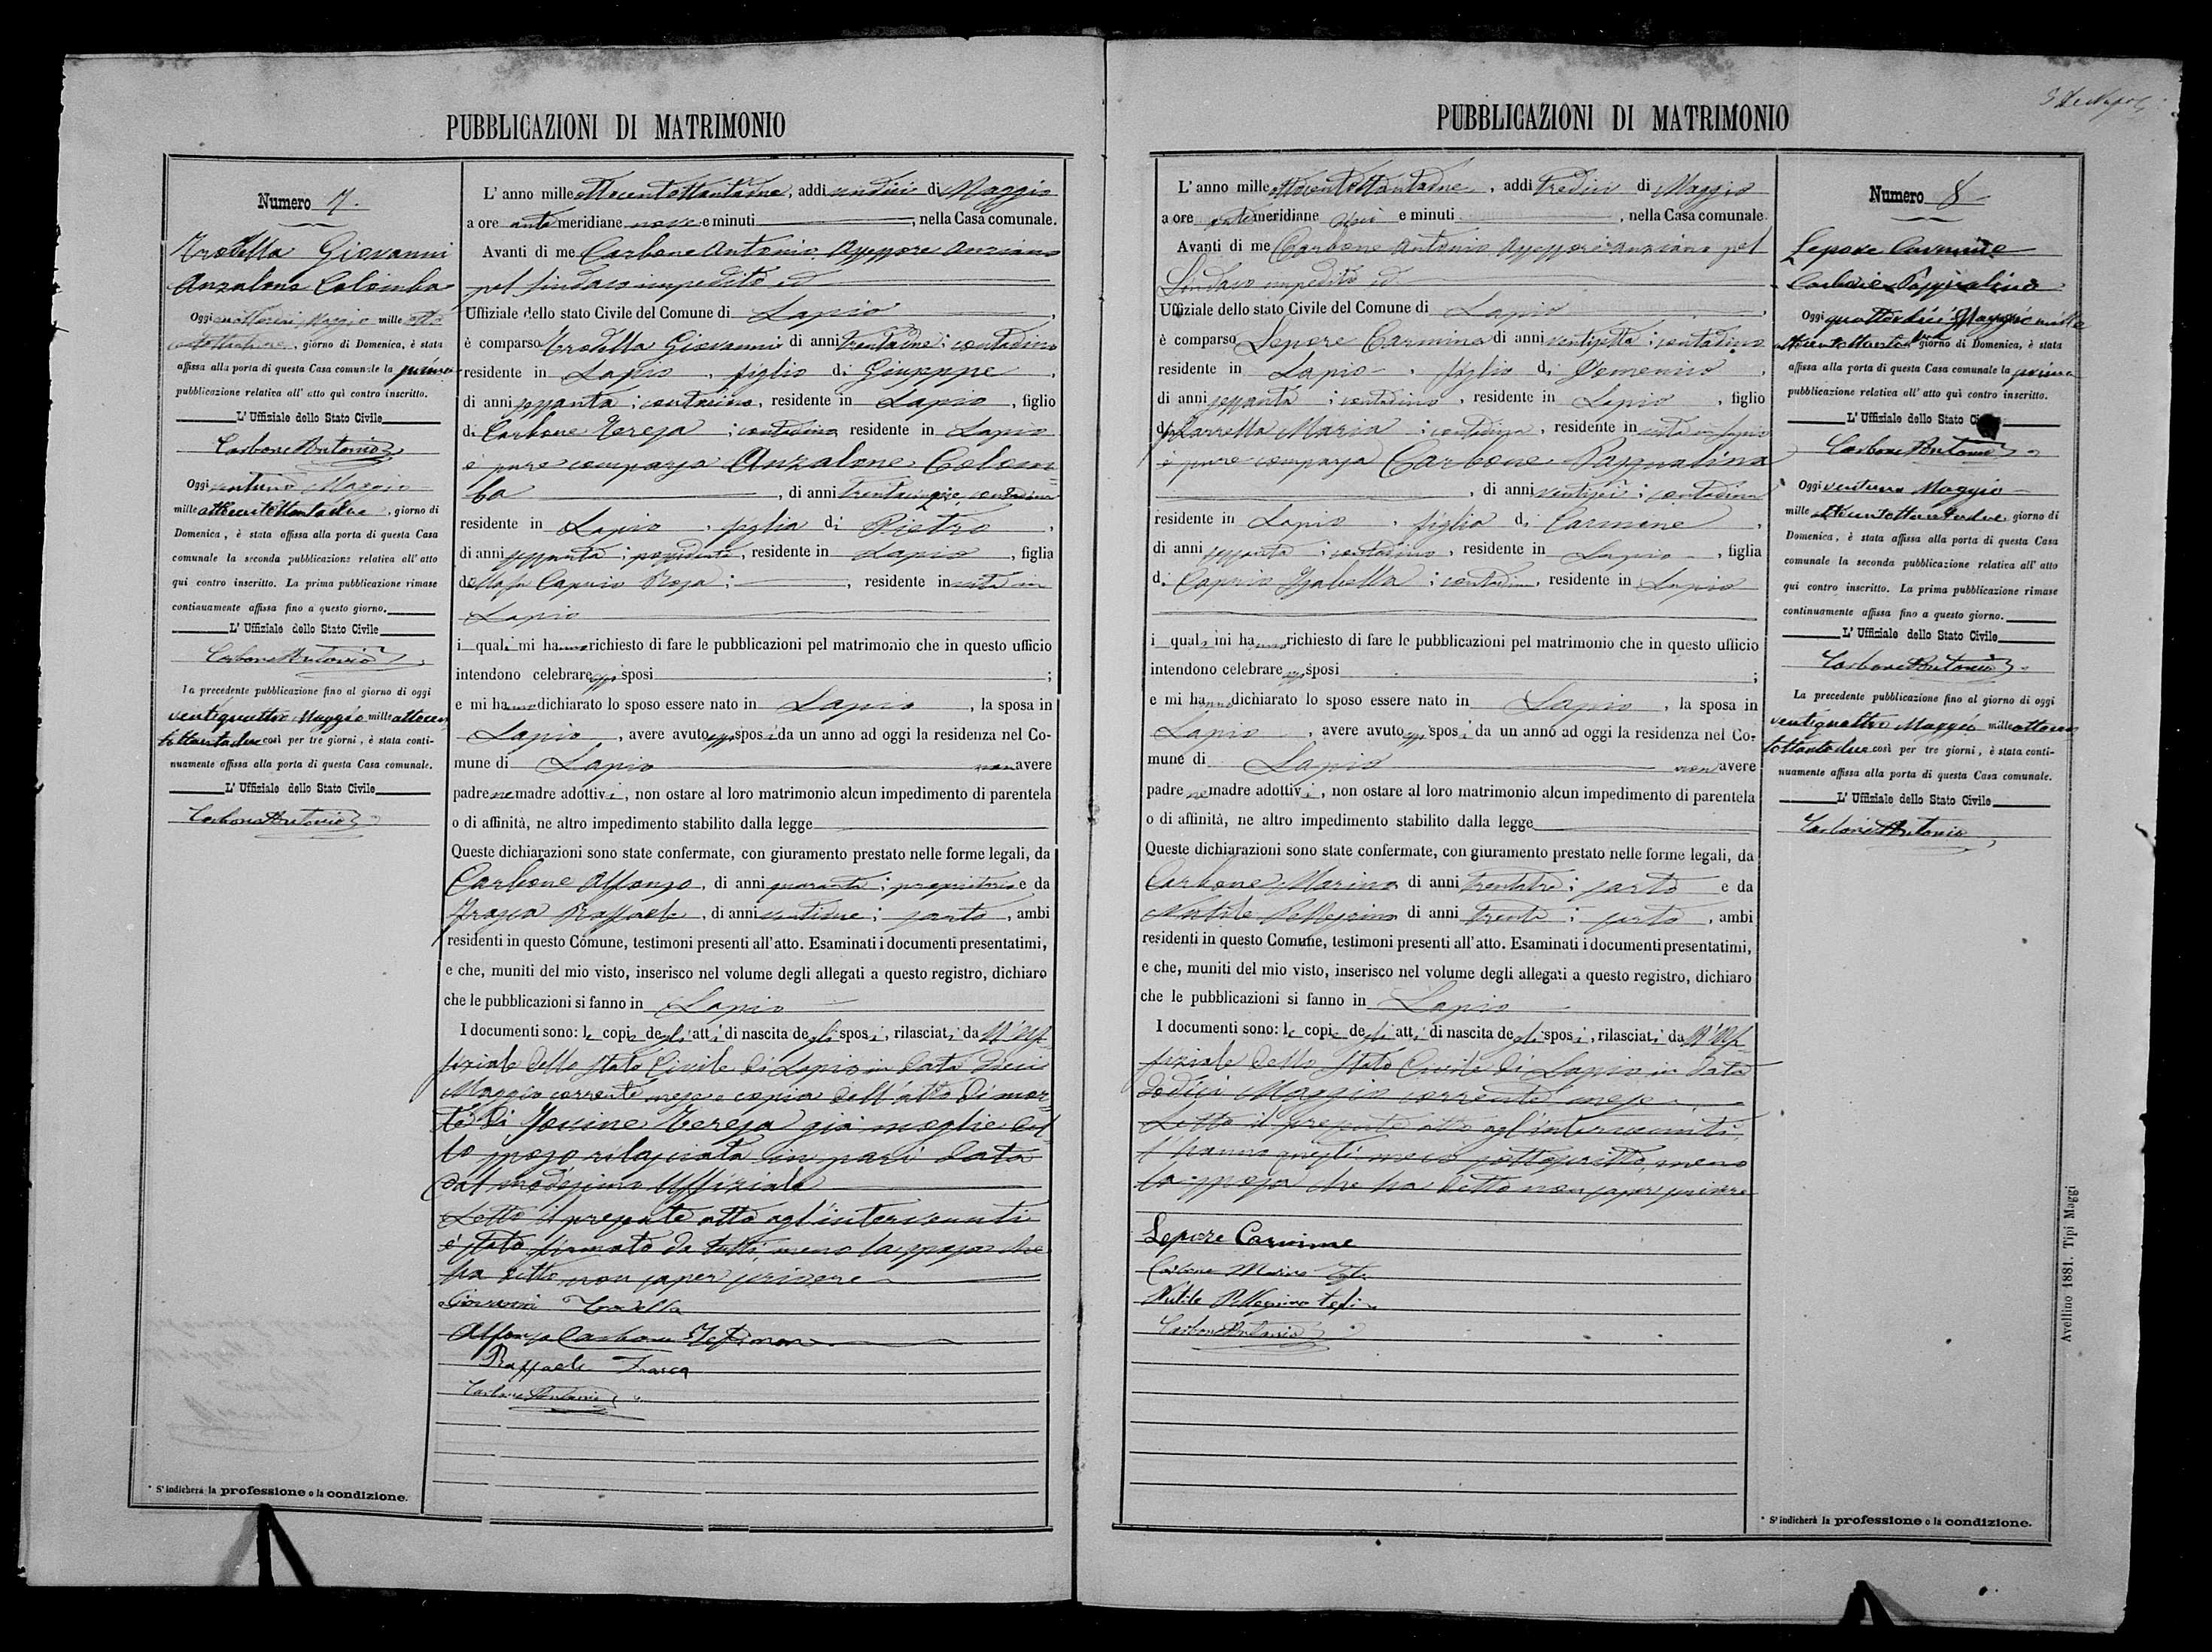 PUBBLICAZIONI DI MATRIMONIO
Numero 7.
Trodella Giovanni
Anzalone Colomba
Oggi quattordici Maggio mille otto
cottantadue, giorno di Domenica, è stata
affissa alla porta di questa Casa comunale la prima
pubblicazione relativa all' atto quì contro inscritto.
L' Uffiziale dello Stato Civile
Carbone Antonio
Oggi ventuno Maggio
mille ottocentottantadue, giorno di
Domenica, è stata affissa alla porta di questa Casa
comunale la seconda pubblicazione relativa all' atto
qui contro inscritto. La prima pubblicazione rimase
continuamente affissa fino a questo giorno.
L' Uffiziale dello Stato Civile
Carbone Antonio
La precedente pubblicazione fino al giorno di oggi
ventiquattro Maggio mille ottocen
tottantadue così per tre giorni, è stata conti-
nuamente affissa alla porta di questa Casa comunale.
L' Uffiziale dello Stato Civile
Carbone Antonio
* S' indicherà la professione o la condizione.
L' anno mille ottocentottantadue, addì undici di Maggio
a ore antemeridiane nove e minuti , nella Casa comunale.
Avanti di me Carbone Antonio Assessore Anziano
pel Sindaco impedito ed
Uffiziale dello stato Civile del Comune di Lapio ,
è comparso Trodella Giovanni di anni trentadue; contadino
residente in Lapio , figlio di Giuseppe ,
di anni sessanta; contadino, residente in Lapio , figlio
di Carbone Teresa ; contadina residente in Lapio
è pure comparsa Anzalone Colom=
ba , di anni trentacinque contadina
residente in Lapio , figlia di Pietro ,
di anni sessanta; possidente, residente in Lapio , figlia
della fu Capuio Rosa; , residente in vita in
Lapio
i quali mi hanno richiesto di fare le pubblicazioni pel matrimonio che in questo ufficio
intendono celebrare essi sposi ;
e mi hanno dichiarato lo sposo essere nato in Lapio , la sposa in
Lapio , avere avuto essi sposi da un anno ad oggi la residenza nel Co-
mune di Lapio non avere
padre ne madre adottivi, non ostare al loro matrimonio alcun impedimento di parentela
o di affinità, ne altro impedimento stabilito dalla legge
Queste dichiarazioni sono state confermate, con giuramento prestato nelle forme legali, da
Carbone Alfonso, di anni quaranta; proprietario e da
Frasca Raffaele, di anni ventidue; sarto, ambi
residenti in questo Comune, testimoni presenti all' atto. Esaminati i documenti presentatimi,
e che, muniti del mio visto, inserisco nel volume degli allegati a questo registro, dichiaro
che le pubblicazioni si fanno in Lapio
I documenti sono: le copie degli atti di nascita degli sposi, rilasciati da ll' Uf=
fiziale dello Stato Civile di Lapio in data dieci
Maggio corrente mese e copia dell' atto di mor=
te di Iovine Teresa già moglie del=
lo sposo rilasciata in pari data
dal medesimo Uffiziale
Letto il presente atto agl' intervenuti
è stato firmato da tutti meno la sposa che
ha detto non saper scrivere
Giovanni Trodella
Alfonso Carbone Testimone
Raffaele Frasca
Carbone Antonio
PUBBLICAZIONI DI MATRIMONIO
L' anno mille ottocentottantadue, addì tredici di Maggio
a ore antemeridiane e minuti , nella Casa comunale.
Avanti di me Carbone Antonio Assessore Anziano pel
Sindaco impedito ed
Uffiziale dello stato Civile del Comune di Lapio ,
è comparso Lepore Carmine di anni ventisette; contadino
residente in Lapio , figlio di Domenico ,
di anni sessanta ; contadino, residente in Lapio , figlio
di Maria ; contadina, residente in vita in Lapio
è pure comparsa Carbone Pasqualina
, di anni ventisei ; contadina
residente in Lapio , figlia di Carmine ,
di anni sessanta ; contadino, residente in Lapio , figlia
di Isabella ; contadina, residente in Lapio
i quali mi hanno richiesto di fare le pubblicazioni pel matrimonio che in questo ufficio
intendono celebrare essi sposi ;
e mi hanno dichiarato lo sposo essere nato in Lapio , la sposa in
Lapio , avere avuto essi sposi da un anno ad oggi la residenza nel Co-
mune di Lapio non avere
padre ne madre adottivi, non ostare al loro matrimonio alcun impedimento di parentela
o di affinità, ne altro impedimento stabilito dalla legge
Queste dichiarazioni sono state confermate, con giuramento prestato nelle forme legali, da
Carbone Marino di anni trentatre; sarto e da
Nutile Pellegrino di anni trenta; sarto, ambi
residenti in questo Comune, testimoni presenti all' atto. Esaminati i documenti presentatimi,
e che, muniti del mio visto, inserisco nel volume degli allegati a questo registro, dichiaro
che le pubblicazioni si fanno in Lapio
I documenti sono: le copie degli atti di nascita degli sposi, rilasciati da ll' Uf=
fiziale dello Stato Civile di Lapio in data
dodici Maggio corrente mese
Letto il presente atto agl' intervenuti,
l' hanno questi meco sottoscritto, meno
la sposa che ha detto non saper scrivere
Lepore Carmine
Carbone Marino
Nutile Pellegrino
Carbone Antonio
Numero 8
Lepore Carmine
Carbone Pasqualina
Oggi quattordici Maggio mille
ottocentottantadue giorno di Domenica, è stata
affissa alla porta di questa Casa comunale la prima
pubblicazione relativa all' atto quì contro inscritto.
L' Uffiziale dello Stato
Carbone Antonio
Oggi ventuno Maggio
mille ottocentottantadue, giorno di
Domenica, è stata affissa alla porta di questa Casa
comunale la seconda pubblicazione relativa all' atto
qui contro inscritto. La prima pubblicazione rimase
continuamente affissa fino a questo giorno.
L' Uffiziale dello Stato Civile
Carbone Antonio
La precedente pubblicazione fino al giorno di oggi
ventiquattro Maggio mille ottocen
tottantadue così per tre giorni, è stata conti-
nuamente affissa alla porta di questa Casa comunale.
L' Uffiziale dello Stato Civile
Carbone Antonio
* S' indicherà la professione o la condizione.
Avellino 1881. Tipi Maggi